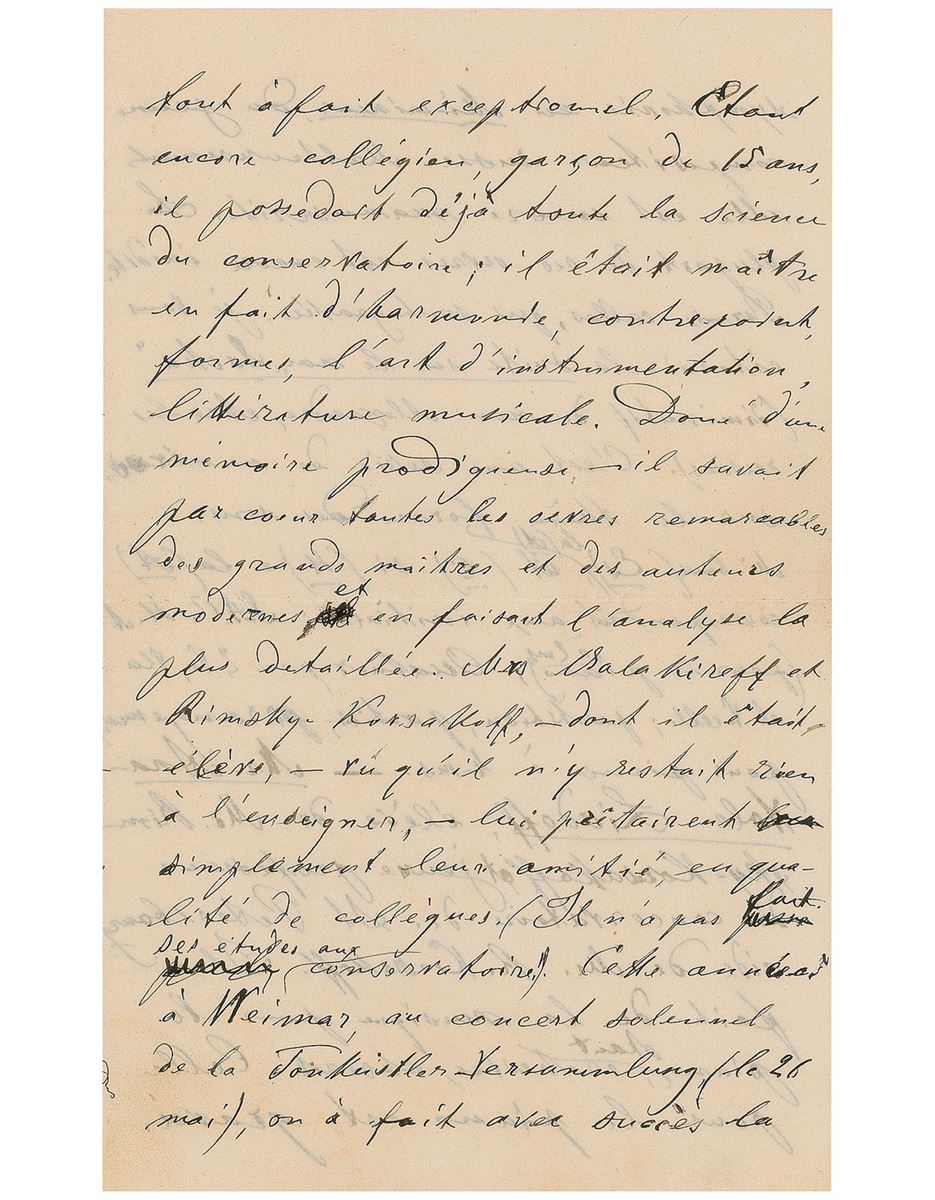 tout à fait exceptionnel. Étant
encore collégien, garçon de 15 ans,
il possedait déjà toute la science
du conservatoire; il était maître
en fait d'harmonie, contre-point,
formes, l'art d'instrumentation,
littérature musicale. Doué d'une
mémoire prodigieuse — il savait
par coeur toutes les oevres remarcables
des grands maîtres et des auteurs
modernes et en faisait l'analyse la
plus detaillée. Mrs Balakireff et
Rimsky-Korsakoff, — dont il était
élève, — vu qu'il n'y restait rien
à l'enseigner, — lui prêtairent
simplement leur amitié, en qua-
lité de collègues. (Il n'a pas fait
ses études aux
conservatoire). Cette année
à Weimar, au concert solennel
de la Tonküstler-Versammlung (le 26
mai), on à fait avec succès la